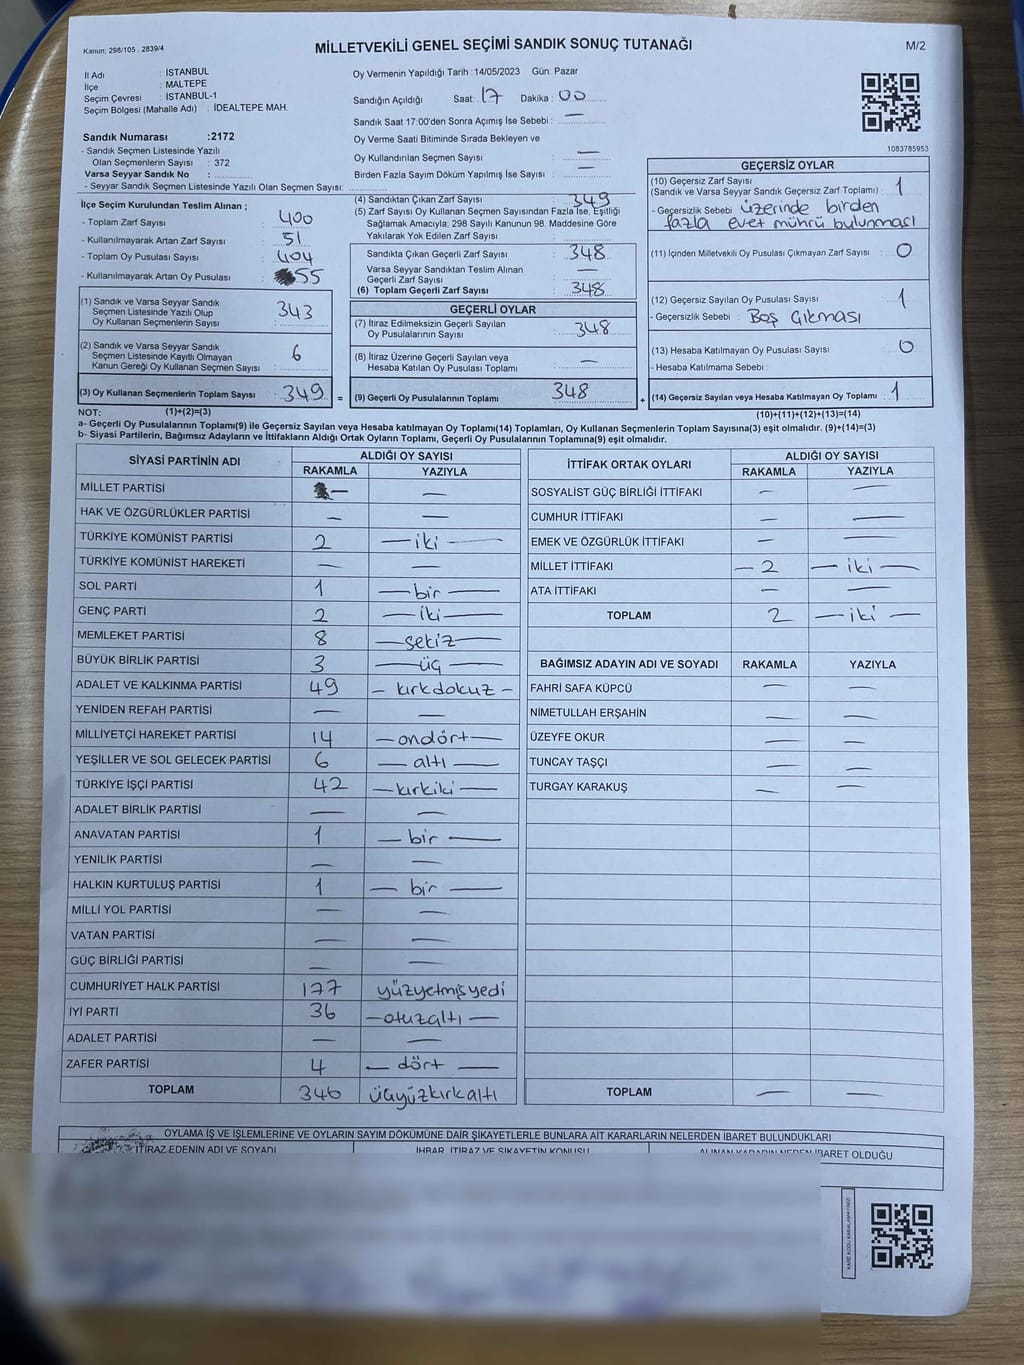 Kanun: 298/105 . 2839/4
MİLLETVEKİLİ GENEL SEÇİMİ SANDIK SONUÇ TUTANAĞI
M/2
İl Adı : İSTANBUL
İlçe : MALTEPE
Seçim Çevresi : İSTANBUL-1
Seçim Bölgesi (Mahalle Adı) : İDEALTEPE MAH.
Sandık Numarası :2172
- Sandık Seçmen Listesinde Yazılı
Olan Seçmenlerin Sayısı : 372
Varsa Seyyar Sandık No :
- Seyyar Sandık Seçmen Listesinde Yazılı Olan Seçmen Sayısı:
Oy Vermenin Yapıldığı Tarih :14/05/2023 Gün: Pazar
Sandığın Açıldığı Saat: 17 Dakika : 00
Sandık Saat 17:00'den Sonra Açımış İse Sebebi : —
Oy Verme Saati Bitiminde Sırada Bekleyen ve
Oy Kullandırılan Seçmen Sayısı : —
Birden Fazla Sayım Döküm Yapılmış İse Sayısı : —
1083785953
İlçe Seçim Kurulundan Teslim Alınan ;
- Toplam Zarf Sayısı : 400
- Kullanılmayarak Artan Zarf Sayısı : 51
- Toplam Oy Pusulası Sayısı : 404
- Kullanılmayarak Artan Oy Pusulası : 55
(1) Sandık ve Varsa Seyyar Sandık
Seçmen Listesinde Yazılı Olup
Oy Kullanan Seçmenlerin Sayısı : 343
(2) Sandık ve Varsa Seyyar Sandık
Seçmen Listesinde Kayıtlı Olmayan
Kanun Gereği Oy Kullanan Seçmen Sayısı : 6
(3) Oy Kullanan Seçmenlerin Toplam Sayısı : 349 =
(4) Sandıktan Çıkan Zarf Sayısı : 349
(5) Zarf Sayısı Oy Kullanan Seçmen Sayısından Fazla İse, Eşitliği
Sağlamak Amacıyla; 298 Sayılı Kanunun 98. Maddesine Göre
Yakılarak Yok Edilen Zarf Sayısı :
Sandıkta Çıkan Geçerli Zarf Sayısı : 348
Varsa Seyyar Sandıktan Teslim Alınan
Geçerli Zarf Sayısı : —
(6) Toplam Geçerli Zarf Sayısı : 348
GEÇERLİ OYLAR
(7) İtiraz Edilmeksizin Geçerli Sayılan
Oy Pusulalarının Sayısı : 348
(8) İtiraz Üzerine Geçerli Sayılan veya
Hesaba Katılan Oy Pusulası Toplamı : —
(9) Geçerli Oy Pusulalarının Toplamı 348 +
GEÇERSİZ OYLAR
(10) Geçersiz Zarf Sayısı
(Sandık ve Varsa Seyyar Sandık Geçersiz Zarf Toplamı) : 1
- Geçersizlik Sebebi : üzerinde birden
fazla evet mührü bulunması
(11) İçinden Milletvekili Oy Pusulası Çıkmayan Zarf Sayısı : 0
(12) Geçersiz Sayılan Oy Pusulası Sayısı : 1
- Geçersizlik Sebebi : Boş Çıkması
(13) Hesaba Katılmayan Oy Pusulası Sayısı : 0
- Hesaba Katılmama Sebebi :
(14) Geçersiz Sayılan veya Hesaba Katılmayan Oy Toplamı : 1
NOT: (1)+(2)=(3)
(10)+(11)+(12)+(13)=(14)
a- Geçerli Oy Pusulalarının Toplamı(9) ile Geçersiz Sayılan veya Hesaba Katılmayan Oy Toplamı(14) Toplamları, Oy Kullanan Seçmenlerin Toplam Sayısına(3) eşit olmalıdır. (9)+(14)=(3)
b- Siyasi Partilerin, Bağımsız Adayların ve İttifakların Aldığı Ortak Oyların Toplamı, Geçerli Oy Pusulalarının Toplamına(9) eşit olmalıdır.
SİYASİ PARTİNİN ADI ALDIĞI OY SAYISI
RAKAMLA YAZIYLA
MİLLET PARTİSİ — —
HAK VE ÖZGÜRLÜKLER PARTİSİ — —
TÜRKİYE KOMÜNİST PARTİSİ 2 — iki —
TÜRKİYE KOMÜNİST HAREKETİ — —
SOL PARTİ 1 — bir —
GENÇ PARTİ 2 — iki —
MEMLEKET PARTİSİ 8 — sekiz —
BÜYÜK BİRLİK PARTİSİ 3 — üç —
ADALET VE KALKINMA PARTİSİ 49 — kırkdokuz —
YENİDEN REFAH PARTİSİ — —
MİLLİYETÇİ HAREKET PARTİSİ 14 — ondört —
YEŞİLLER VE SOL GELECEK PARTİSİ 6 — altı —
TÜRKİYE İŞÇİ PARTİSİ 42 — kırkiki —
ADALET BİRLİK PARTİSİ — —
ANAVATAN PARTİSİ 1 — bir —
YENİLİK PARTİSİ — —
HALKIN KURTULUŞ PARTİSİ 1 — bir —
MİLLİ YOL PARTİSİ — —
VATAN PARTİSİ — —
GÜÇ BİRLİĞİ PARTİSİ — —
CUMHURİYET HALK PARTİSİ 177 yüzyetmişyedi
İYİ PARTİ 36 — otuzaltı —
ADALET PARTİSİ — —
ZAFER PARTİSİ 4 — dört —
TOPLAM 346 üçyüzkırkaltı
İTTİFAK ORTAK OYLARI ALDIĞI OY SAYISI
RAKAMLA YAZIYLA
SOSYALİST GÜÇ BİRLİĞİ İTTİFAKI — —
CUMHUR İTTİFAKI — —
EMEK VE ÖZGÜRLÜK İTTİFAKI — —
MİLLET İTTİFAKI — 2 — iki —
ATA İTTİFAKI — —
TOPLAM 2 — iki —
BAĞIMSIZ ADAYIN ADI VE SOYADI RAKAMLA YAZIYLA
FAHRİ SAFA KÜPCÜ — —
NİMETULLAH ERŞAHİN — —
ÜZEYFE OKUR — —
TUNCAY TAŞÇI — —
TURGAY KARAKUŞ — —
TOPLAM — —
OYLAMA İŞ VE İŞLEMLERİNE VE OYLARIN SAYIM DÖKÜMÜNE DAİR ŞİKAYETLERLE BUNLARA AİT KARARLARIN NELERDEN İBARET BULUNDUKLARI
İTİRAZ EDENİN ADI VE SOYADI İHBAR, İTİRAZ VE ŞİKAYETİN KONUSU ALINAN KARARIN NEDEN İBARET OLDUĞU